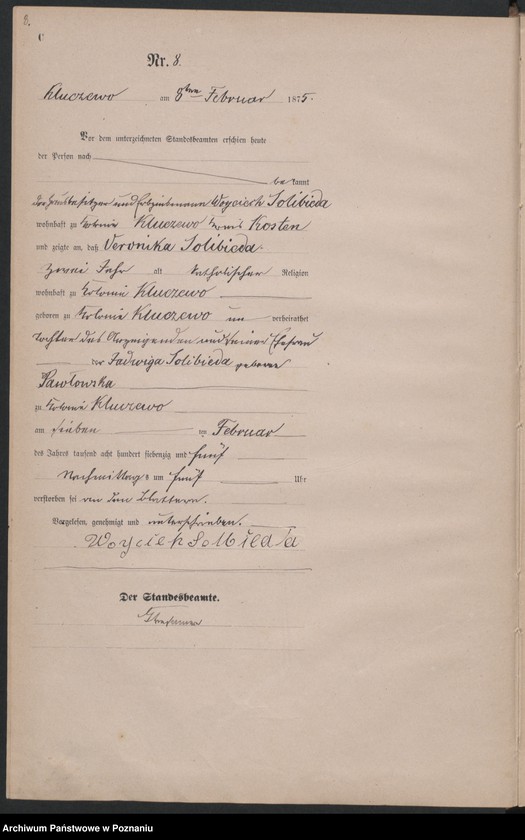 8.
C
Nr. 8.
Kluczewo am 8ten Februar 1875.
Vor dem unterzeichneten Standesbeamten erschien heute
der Person nach
bekannt
der Hausbesitzer und Wojciech Solibieda
wohnhaft zu Kolonie Kluczewo Kreis Kosten
und zeigte an, daß Veronika Solibieda
zwei Jahr alt katholischer Religion
wohnhaft zu Kolonie Kluczewo
geboren zu Kolonie Kluczewo un verheirathet
Tochter des Anzeigenden und seiner Ehefrau
der Jadwiga Solibieda geborene
Pawłowska
zu Kolonie Kluczewo
am sieben ten Februar
des Jahres tausend acht hundert siebenzig und fünf
Nachmittags um fünf Uhr
verstorben sei an den Blattern.
Vorgelesen, genehmigt und unterschrieben.
Woyciek Solibieda
Der Standesbeamte.
Archiwum Państwowe w Poznaniu